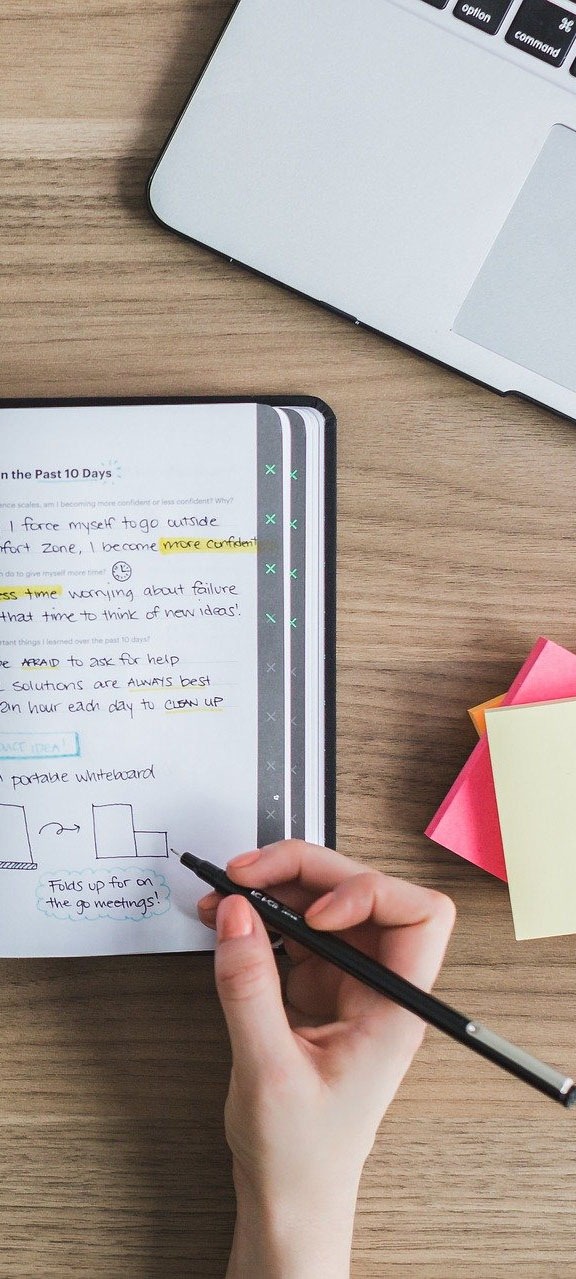 option
⌘
command
n the Past 10 Days
ance scales, am I becoming more confident or less confident? Why?
I force myself to go outside
fort zone, I become more confident
n do to give myself more time?
ss time worrying about failure
that time to think of new ideas!
rtant things I learned over the past 10 days?
AFRAID to ask for help
solutions are ALWAYS best
hour each day to CLEAN UP
IDEA!
portable whiteboard
Folds up for on
the go meetings!